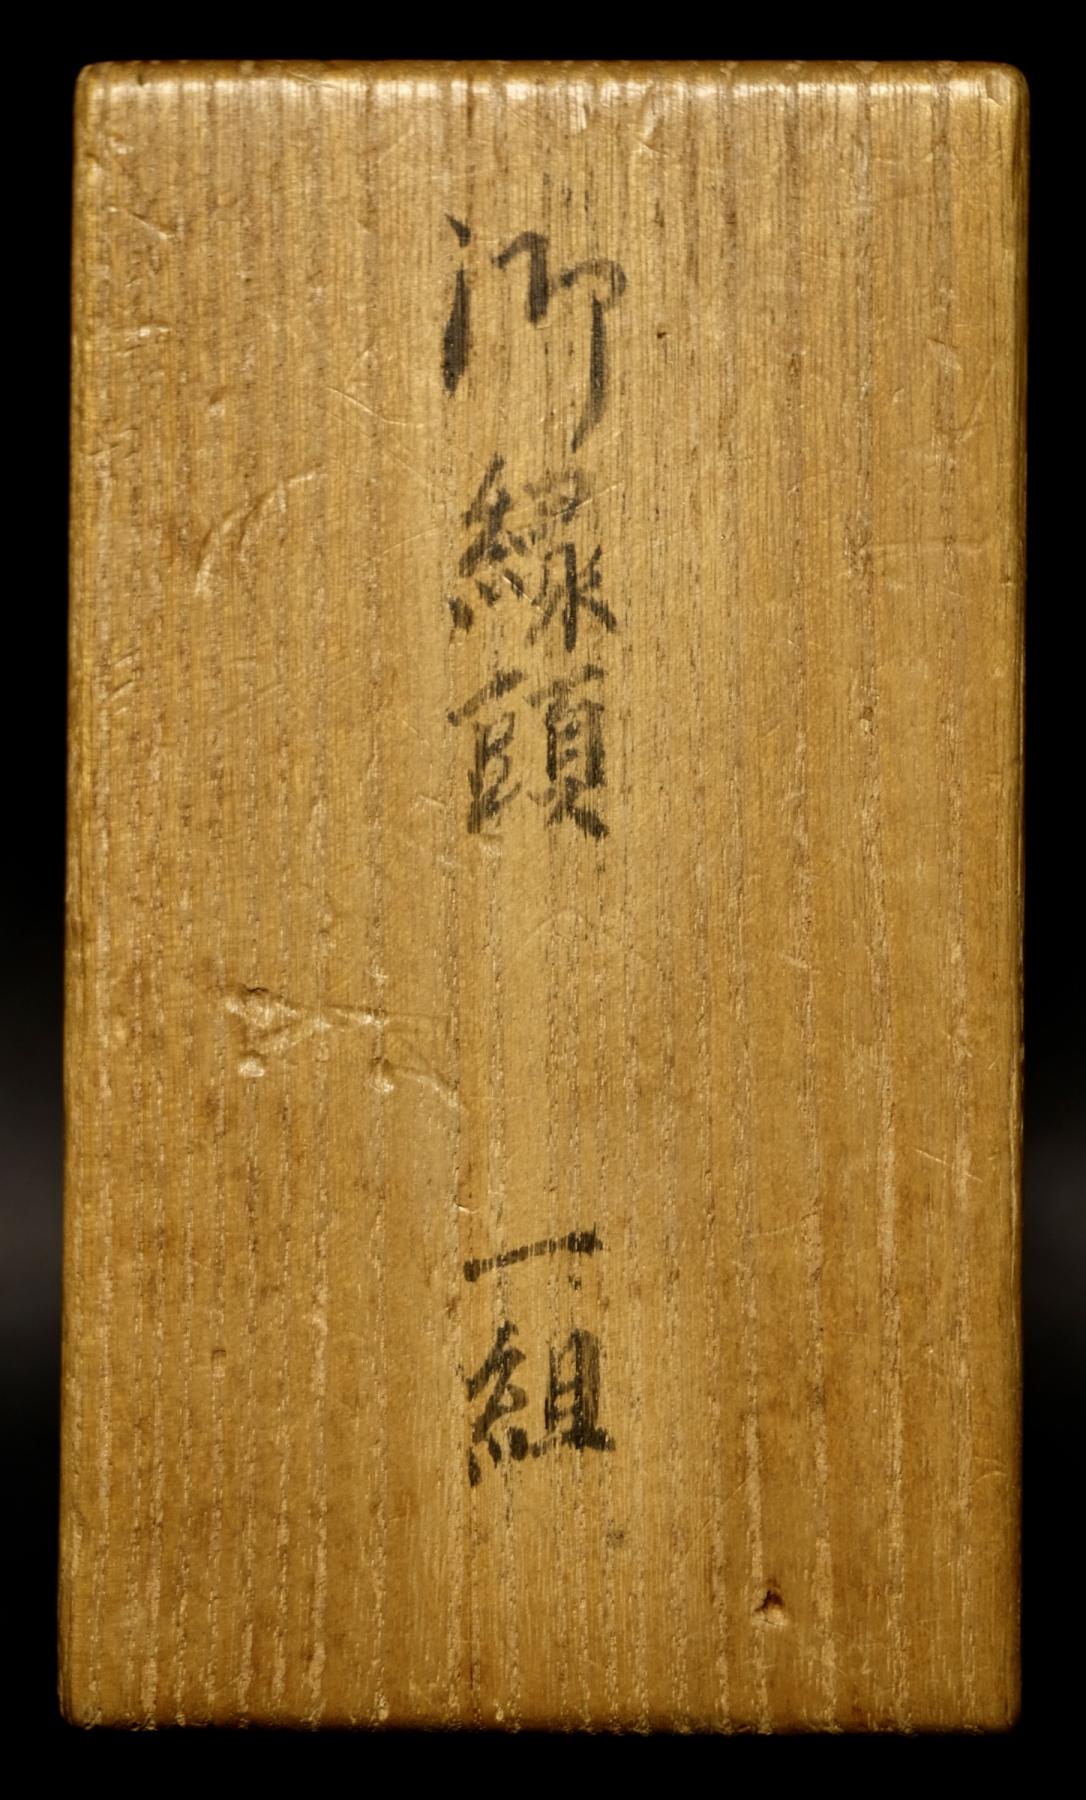 御縁頭　一組